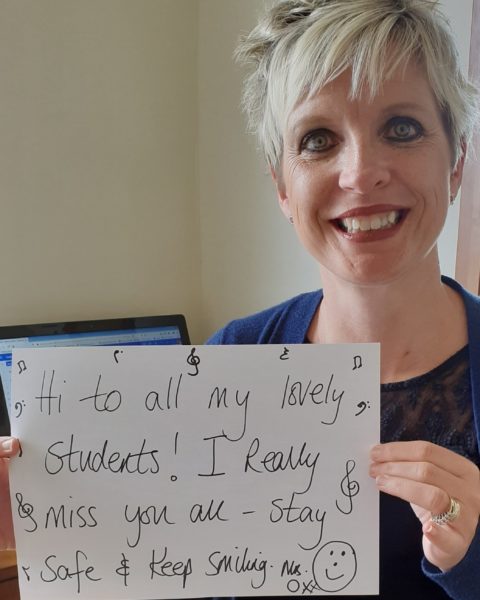 Hi to all my lovely
Students! I Really
miss you all - Stay
Safe & Keep Smiling. Mrs.
Oxx